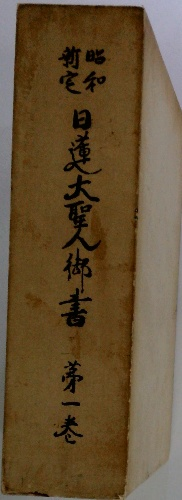 昭和
新定
日蓮大聖人御書
第一巻